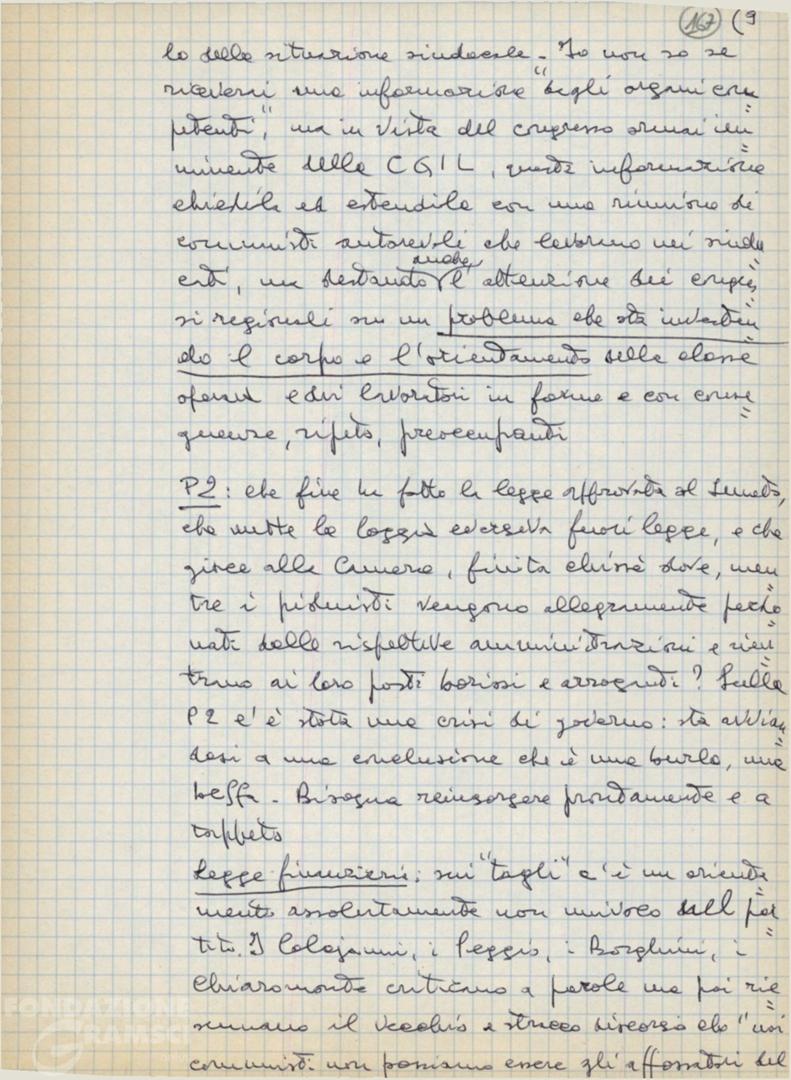 167 (9
lo della situazione sindacale - Io non so se
riceverai una informazione "dagli organi com=
petenti", ma in vista del congresso ormai im=
minente della CGIL, questa informazione
chiedila ed estendila con una riunione di
comunisti autorevoli che lavorino nei sinda=
cati, ma destando anche l'attenzione dei congres=
si regionali su un problema che sta investen=
do il corpo e l'orientamento della classe
operaia e dei lavoratori in forme e con conse=
guenze, ripeto, preoccupanti
P2: che fine ha fatto la legge approvata al Senato,
che mette la loggia eversiva fuori legge, e che
giace alla Camera, finita chissà dove, men=
tre i piduisti vengono allegramente perdo=
nati dalle rispettive amministrazioni e rien=
trano ai loro posti boriosi e arroganti? Sulla
P2 c'è stata una crisi di governo: sta avvian=
dosi a una conclusione che è una burla, una
beffa - Bisogna reinsorgere prontamente e a
tappeto
Legge finanziaria: sui "tagli" c'è un orienta=
mento assolutamente non univoco dall par=
tito. I Colajanni, i Peggio, i Borghini, i
Chiaromonte criticano a parole ma poi rie=
sumano il vecchio e stracco discorso che "noi
comunisti non possiamo essere gli affossatori del
FONDAZIONE
GRAMSCI